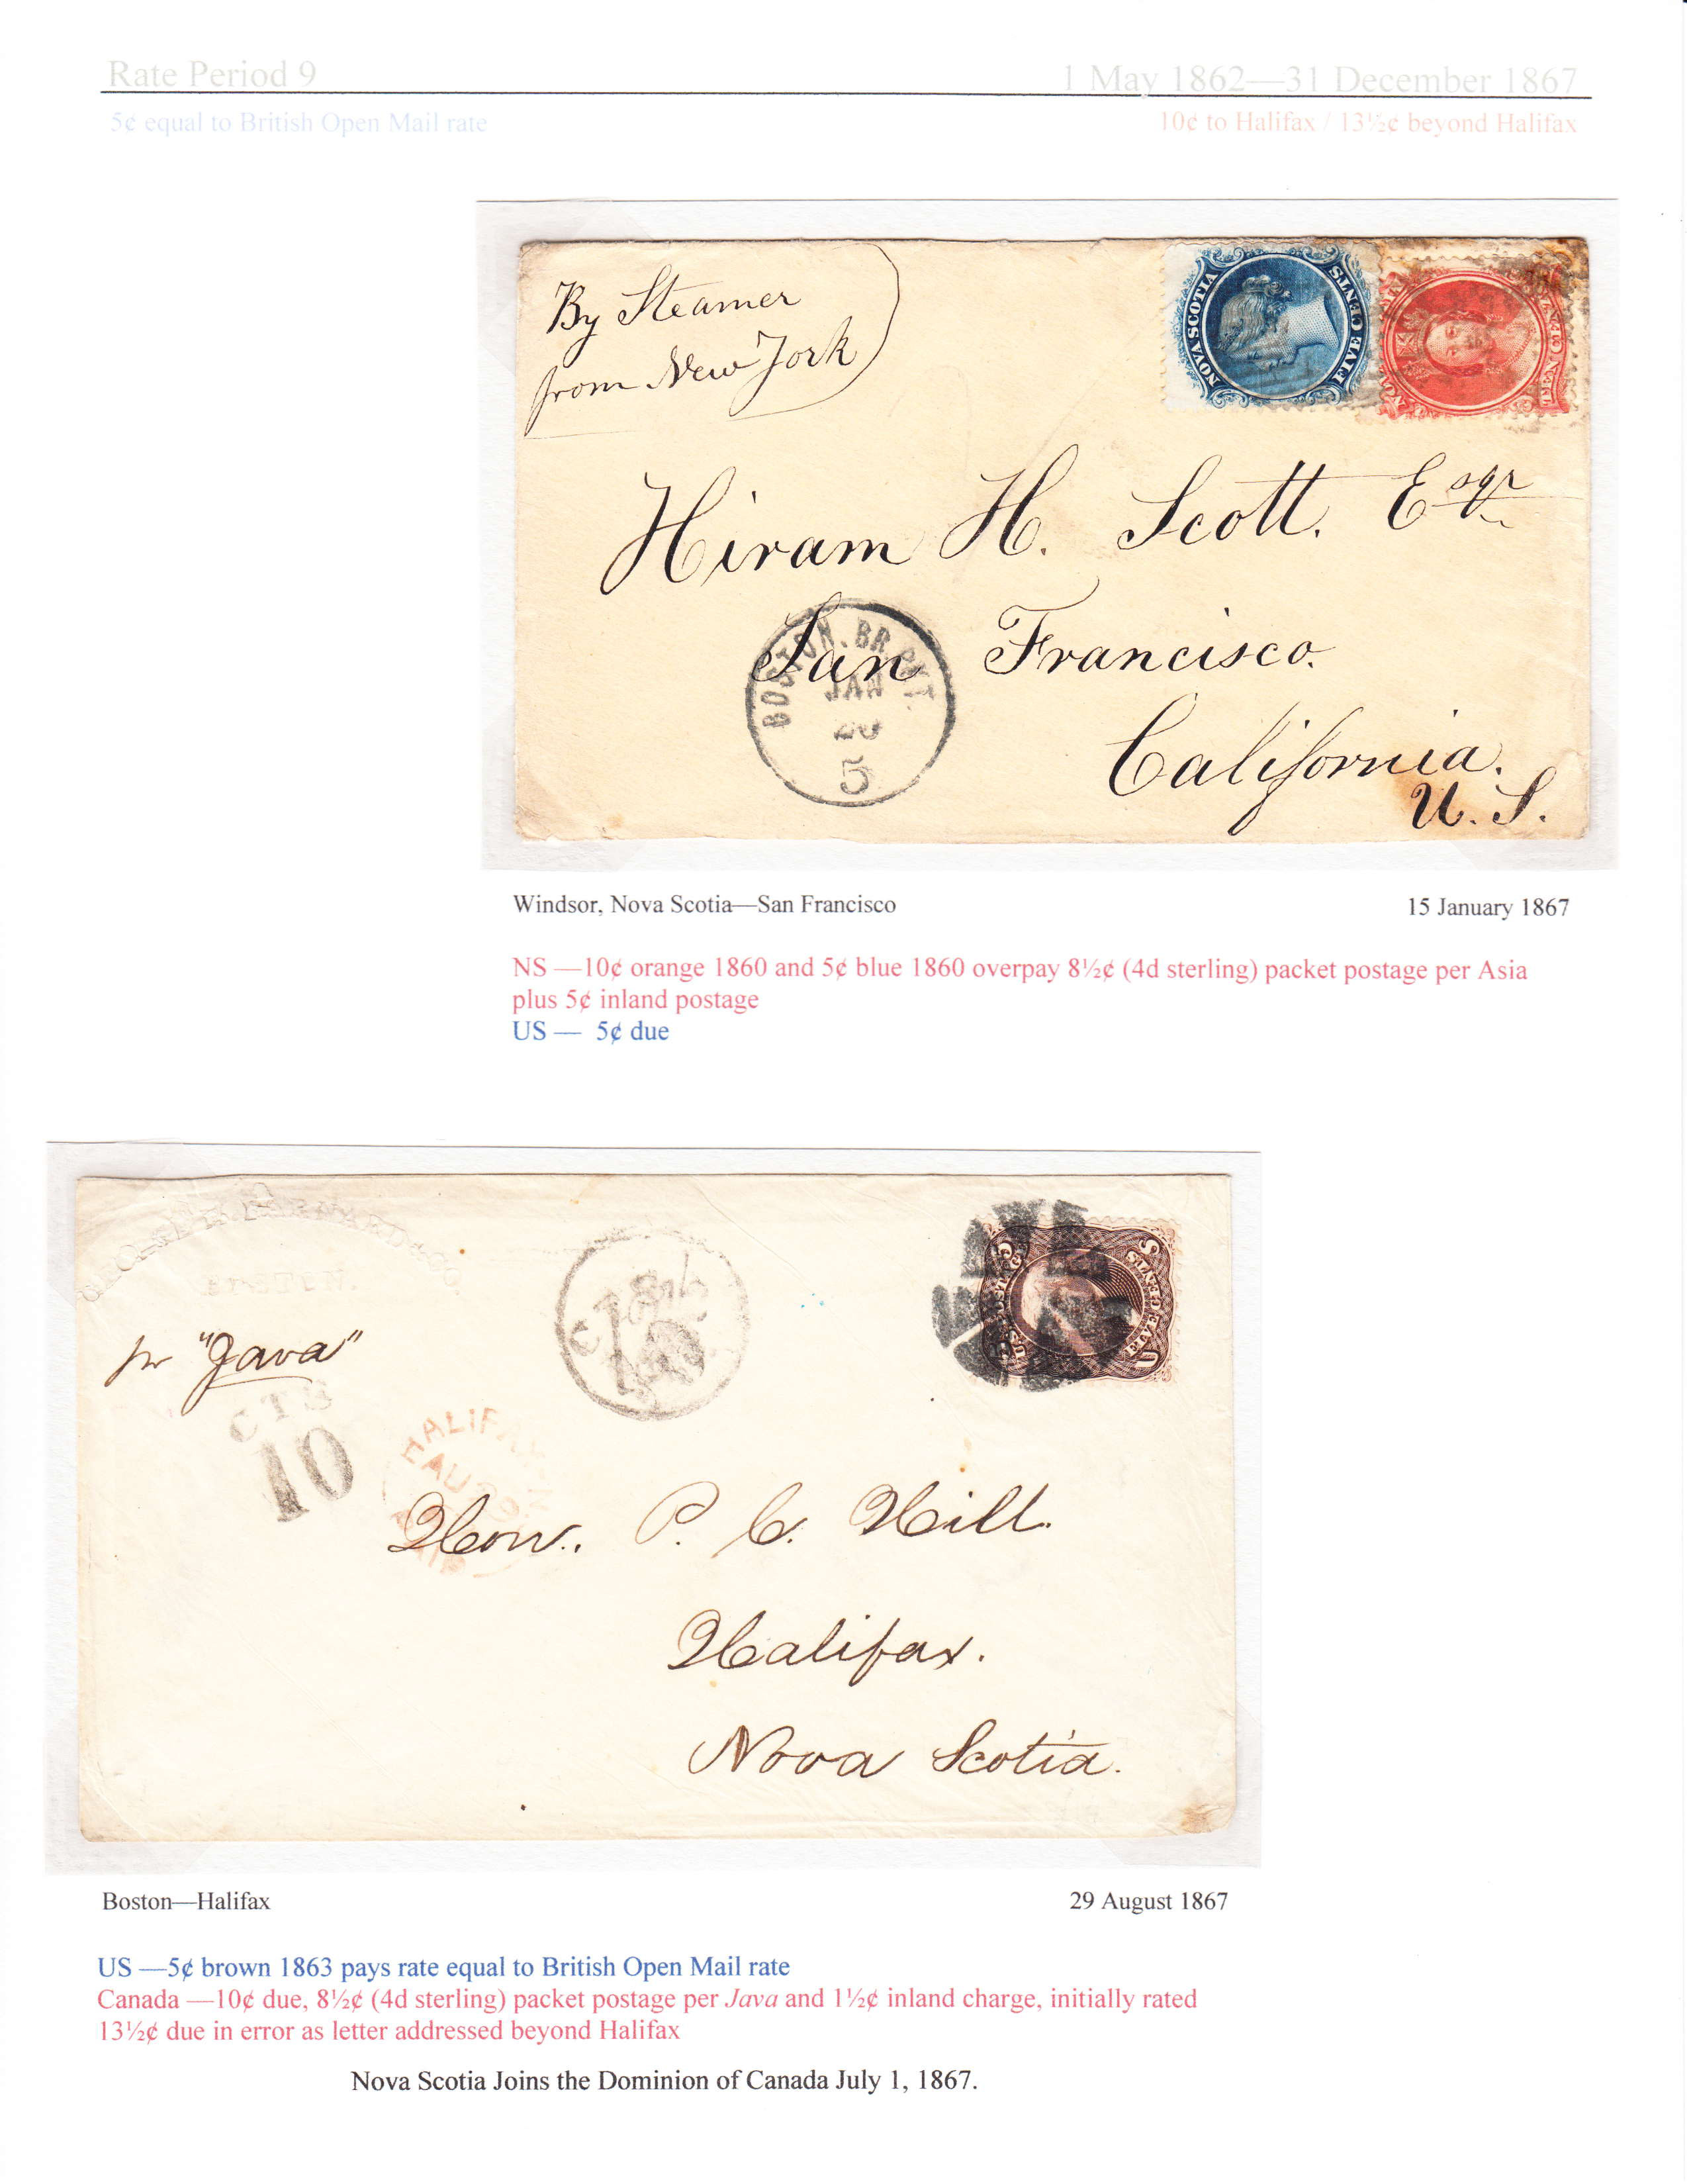 Rate Period 9
1 May 1862—31 December 1867
5¢ equal to British Open Mail rate
10¢ to Halifax / 13½¢ beyond Halifax
By Steamer
from New York
NOVA SCOTIA
FIVE CENTS
Hiram H. Scott. Esqr
San Francisco.
California.
U. S.
BOSTON. BR. PKT.
JAN
5
Windsor, Nova Scotia—San Francisco
15 January 1867
NS —10¢ orange 1860 and 5¢ blue 1860 overpay 8½¢ (4d sterling) packet postage per Asia
plus 5¢ inland postage
US — 5¢ due
pr "Java"
CTS
10
HALIFAX
AU 29
Hon. P. C. Hill.
Halifax.
Nova Scotia.
Boston—Halifax
29 August 1867
US —5¢ brown 1863 pays rate equal to British Open Mail rate
Canada —10¢ due, 8½¢ (4d sterling) packet postage per Java and 1½¢ inland charge, initially rated
13½¢ due in error as letter addressed beyond Halifax
Nova Scotia Joins the Dominion of Canada July 1, 1867.